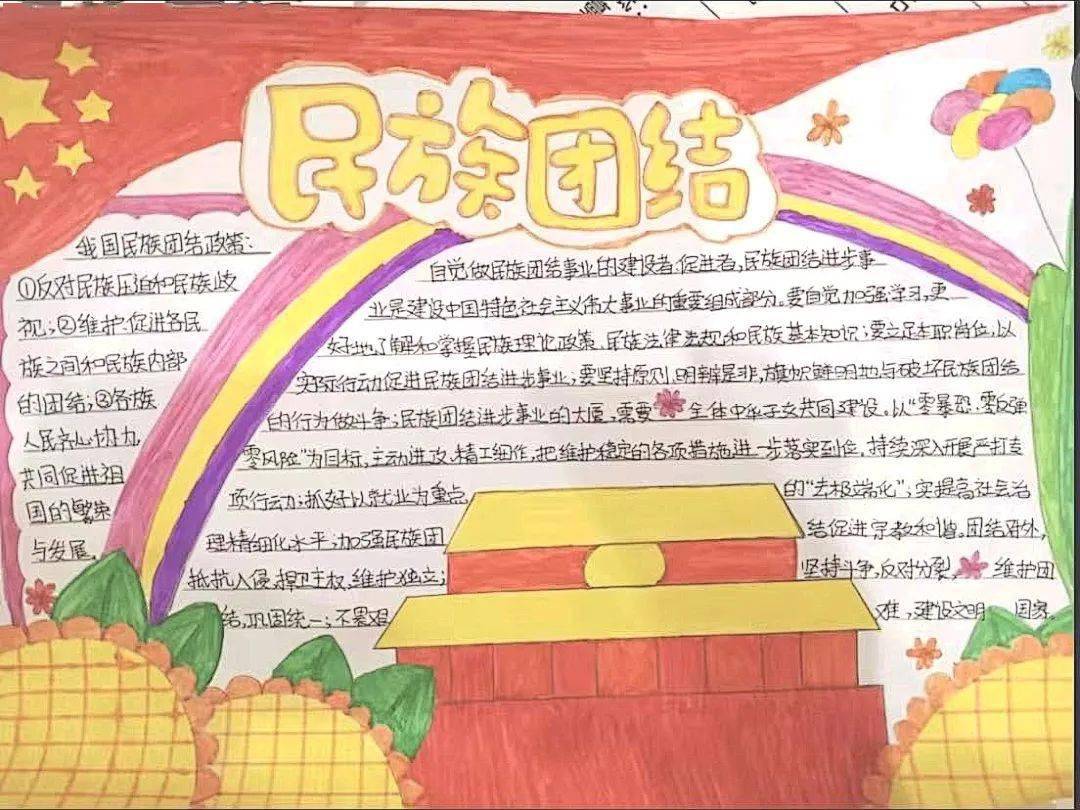 民族团结
我国民族团结政策:
①反对民族压迫和民族歧
视;②维护.促进各民
族之间和民族内部
的团结;③各族
人民齐心协力
共同促进祖
国的繁荣
与发展.
自觉做民族团结事业的建设者.促进者,民族团结进步事
业是建设中国特色社会主义伟大事业的重要组成部分.要自觉加强学习,更
好地了解和掌握民族理论政策、民族法律法规和民族基本知识;要立足本职岗位,以
实际行动促进民族团结进步事业;要坚持原则,明辨是非,旗帜鲜明地与破坏民族团结
的行为做斗争;民族团结进步事业的大厦,需要 全体中华子女共同建设,以“零暴恐.零反弹
零风险”为目标,主动进攻.精工细作,把维护稳定的各项措施进一步落实到位,持续深入开展严打专
项行动;抓好以就业为重点 的“去极端化”;实提高社会治
理精细化水平;加强民族团 结促进宗教和谐.团结府外,
抵抗入侵,捍卫主权,维护独立; 坚持斗争,反对分裂, 维护团
结,巩固统一;不畏艰 难,建设文明 国家.